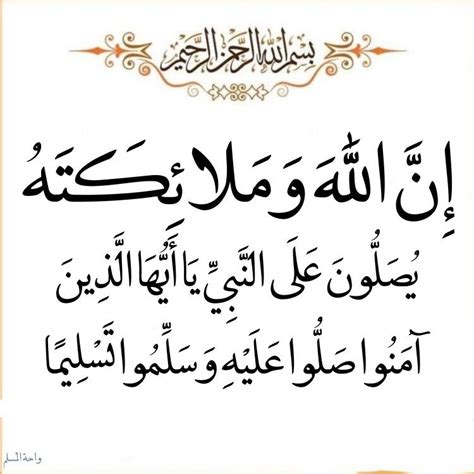 بِسْمِ اللهِ الرَّحْمٰنِ الرَّحِيْمِ
إِنَّ اللَّهَ وَمَلَائِكَتَهُ
يُصَلُّونَ عَلَى النَّبِيِّ يَا أَيُّهَا الَّذِينَ
آمَنُوا صَلُّوا عَلَيْهِ وَسَلِّمُوا تَسْلِيمًا
واحة المسلم